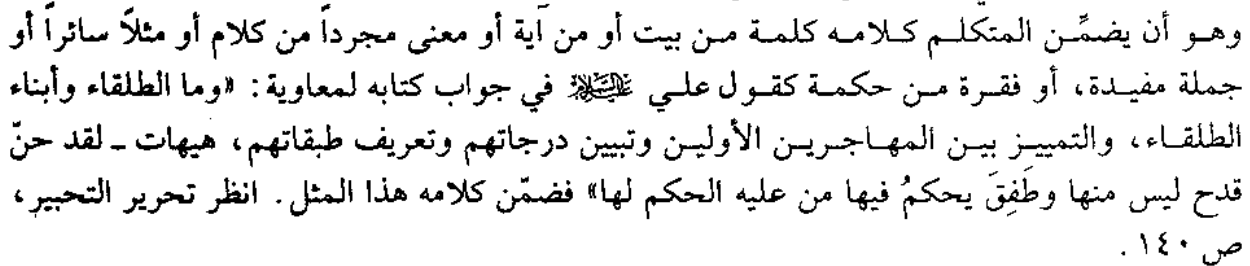 وهو أن يضمِّن المتكلم كلامه كلمة من بيت أو من آية أو معنى مجرداً من كلام أو مثلاً سائراً أو
جملة مفيدة، أو فقرة من حكمة كقول علي عليه السلام في جواب كتابه لمعاوية: «وما الطلقاء وأبناء
الطلقاء، والتمييز بين المهاجرين الأولين وتبيين درجاتهم وتعريف طبقاتهم، هيهات ـ لقد حنّ
قدح ليس منها وطَفِقَ يحكمُ فيها من عليه الحكم لها» فضمّن كلامه هذا المثل. انظر تحرير التحبير،
ص ١٤٠.